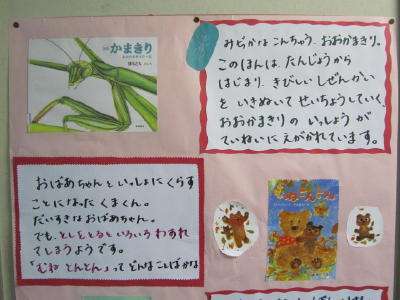 かまきり
みぢかな こんちゅう、おおかまきり。
このほんは、たんじょうから
はじまり、きびしい しぜんかい
を いきぬいて せいちょうしていく、
おおかまきりの いっしょう が
ていねいに えがかれています。
おばあちゃんと いっしょに くらす
ことになった くまくん。
だいすきな おばあちゃん。
でも、としをとると いろいろ わすれ
てしまうようです。
「むね とんとん」って どんな ことばかな
むねとんとん